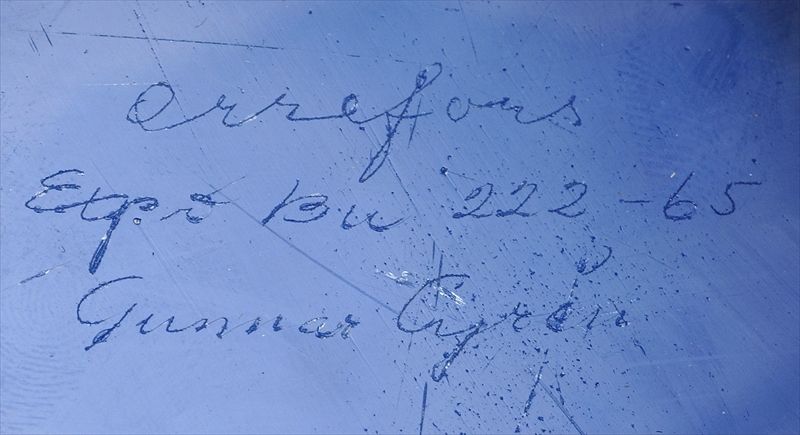 Orrefors
Expo Bu 222-65
Gunnar Cyrén